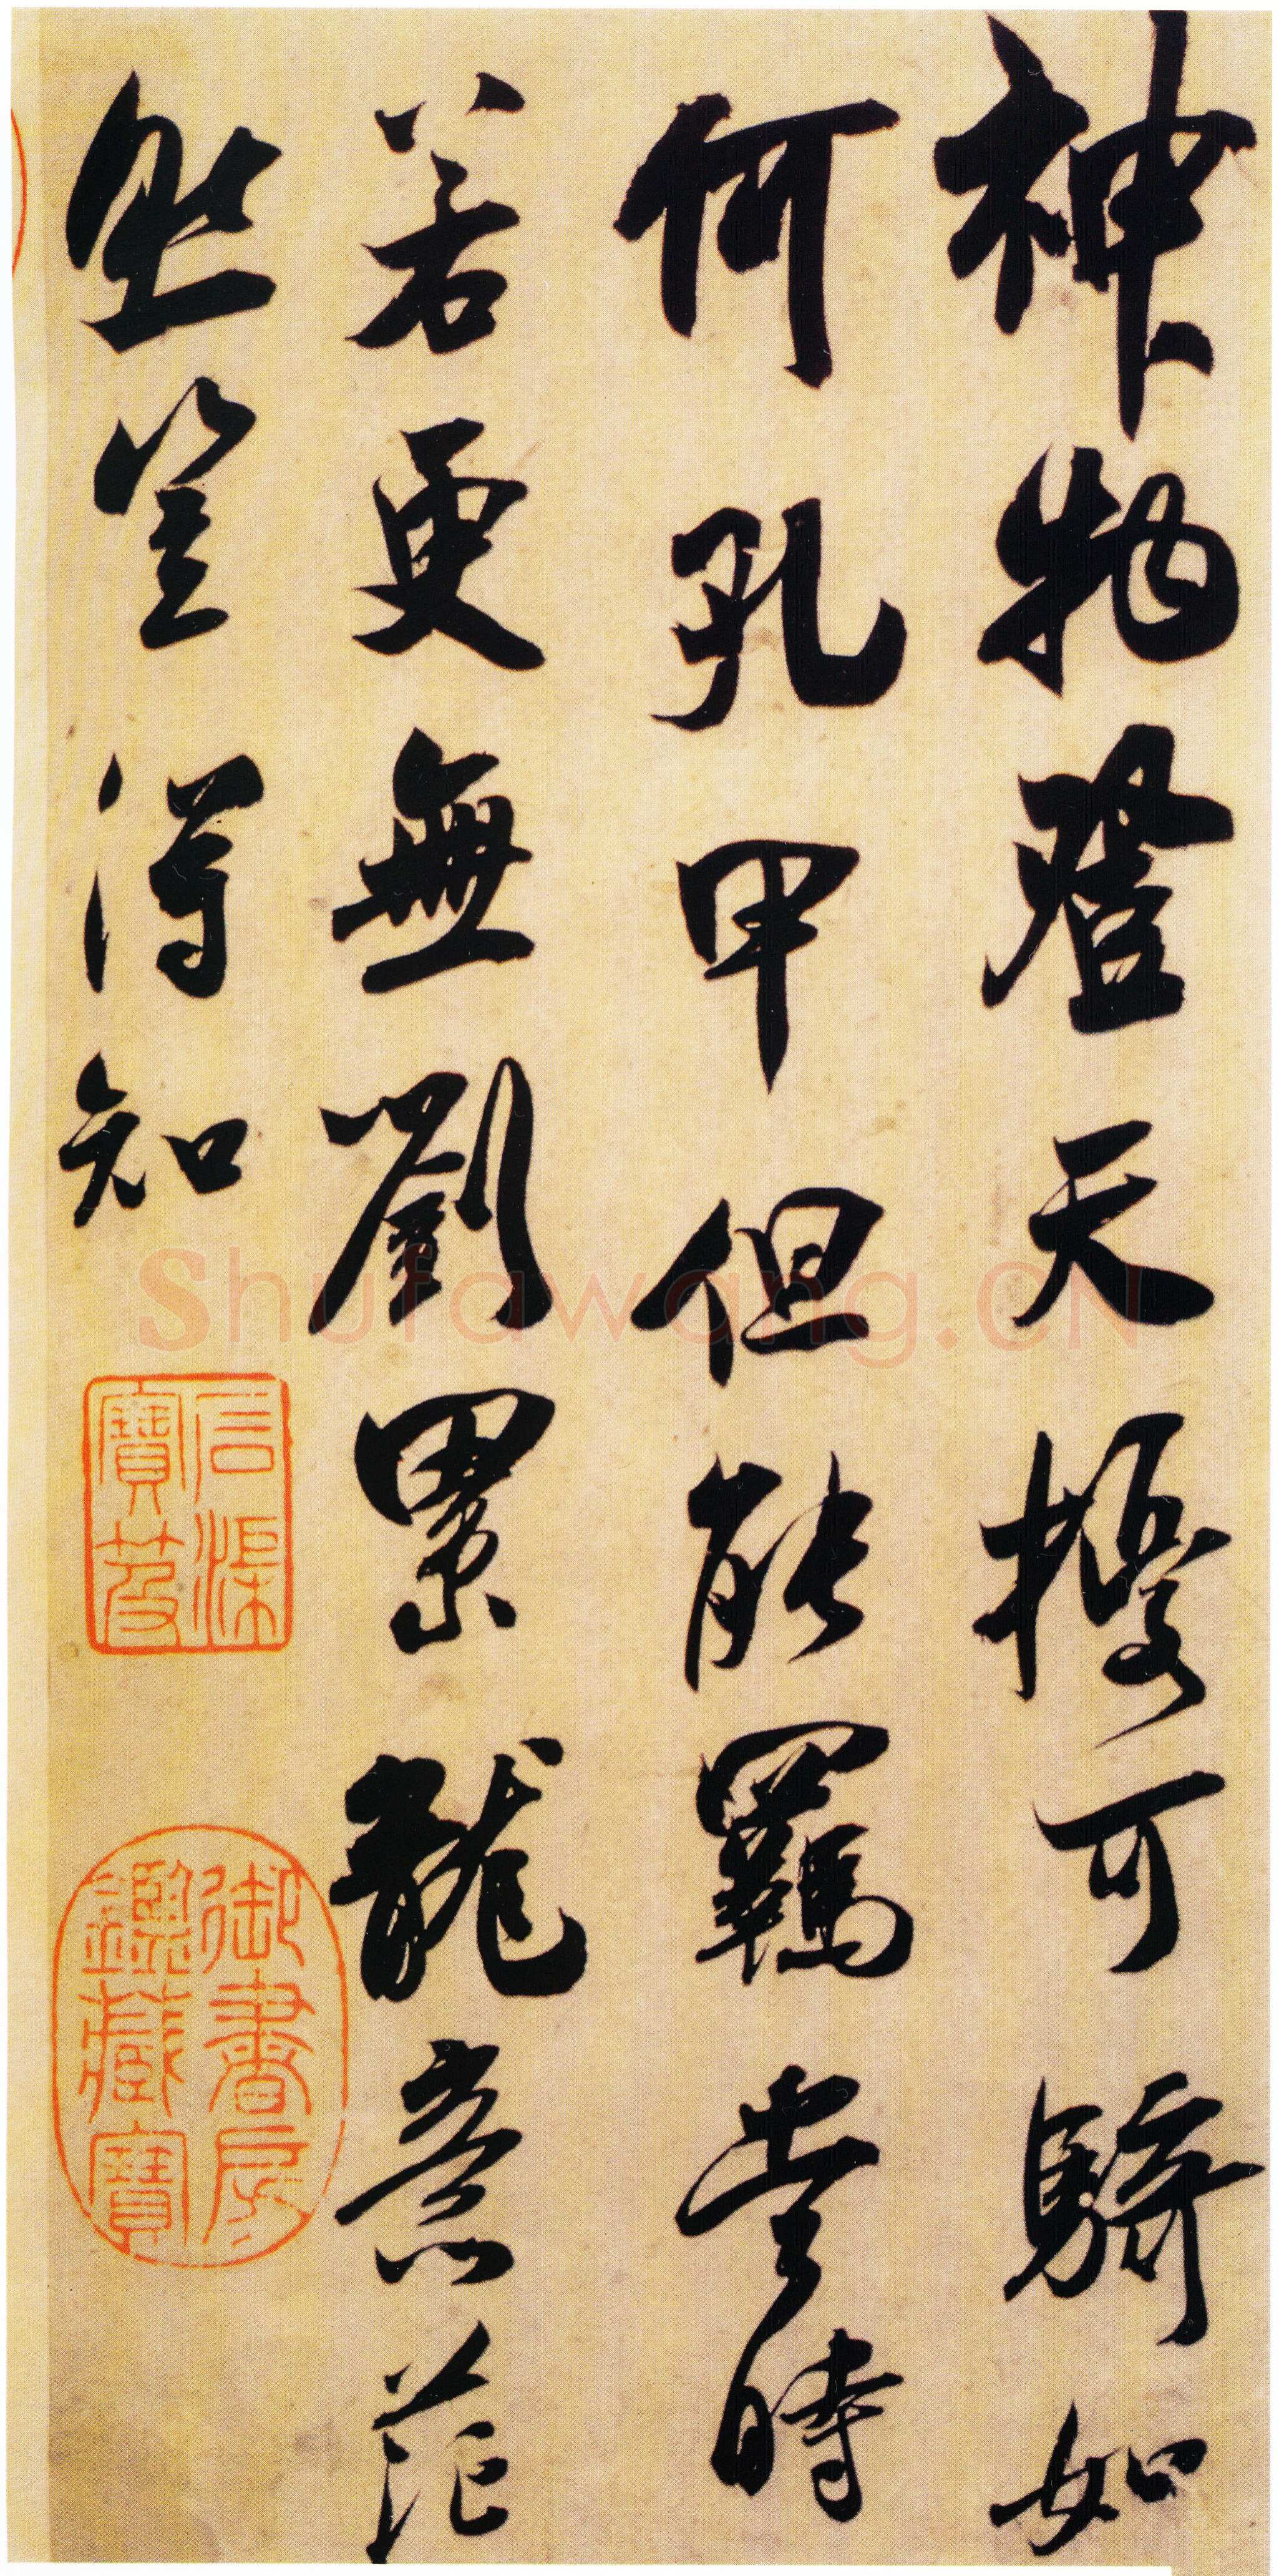 神物登天擾可騎如
何孔甲但能羈當時
若更無劉累龍意茫
然豈得知
石渠
寶笈
御書房
鑑藏寶
Shufawang.CN